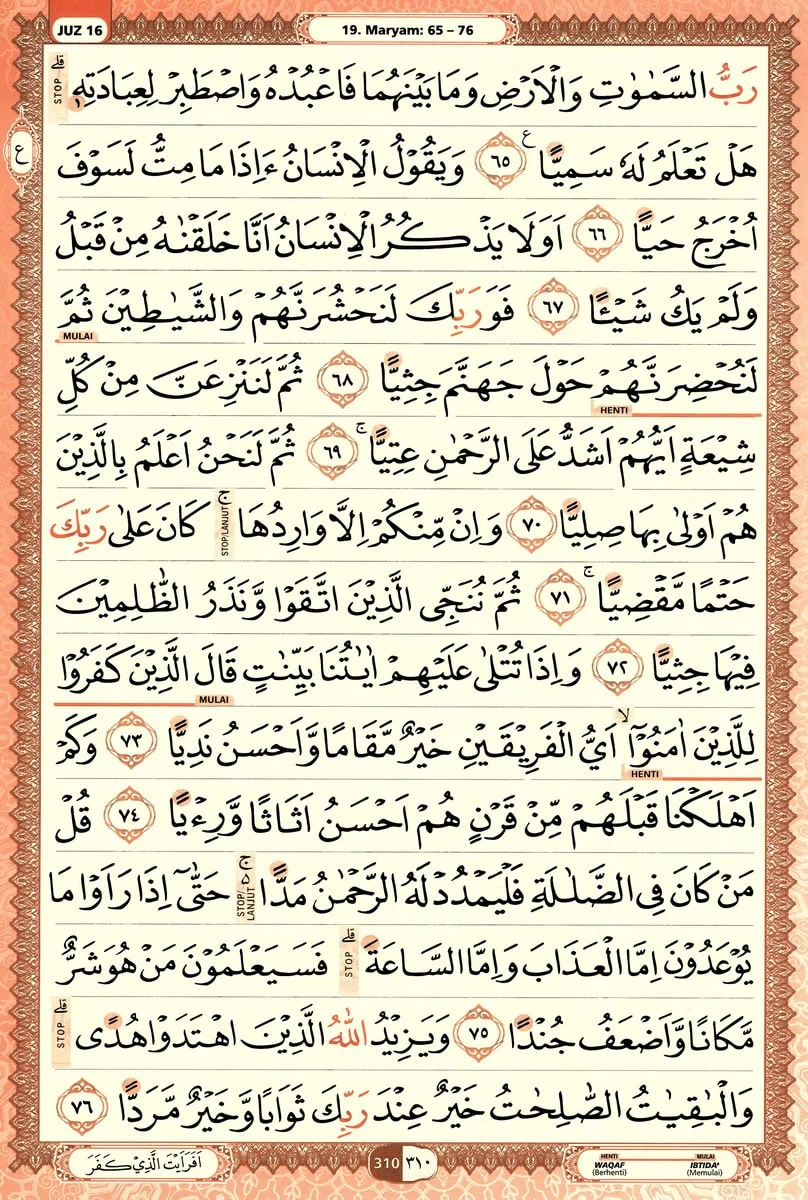 JUZ 16
19. Maryam: 65 – 76
رَبُّ السَّمٰوٰتِ وَالْاَرْضِ وَمَا بَيْنَهُمَا فَاعْبُدْهُ وَاصْطَبِرْ لِعِبَادَتِهٖۗ STOP
ع
هَلْ تَعْلَمُ لَهٗ سَمِيًّا ࣖ ٦٥ وَيَقُوْلُ الْاِنْسَانُ ءَاِذَا مَا مِتُّ لَسَوْفَ
اُخْرَجُ حَيًّا ٦٦ اَوَلَا يَذْكُرُ الْاِنْسَانُ اَنَّا خَلَقْنٰهُ مِنْ قَبْلُ
وَلَمْ يَكُ شَيْـًٔا ٦٧ فَوَرَبِّكَ لَنَحْشُرَنَّهُمْ وَالشَّيٰطِيْنَ ثُمَّ
MULAI
لَنُحْضِرَنَّهُمْ حَوْلَ جَهَنَّمَ جِثِيًّا ٦٨ ثُمَّ لَنَنْزِعَنَّ مِنْ كُلِّ
HENTI
شِيْعَةٍ اَيُّهُمْ اَشَدُّ عَلَى الرَّحْمٰنِ عِتِيًّا ۚ ٦٩ ثُمَّ لَنَحْنُ اَعْلَمُ بِالَّذِيْنَ
هُمْ اَوْلٰى بِهَا صِلِيًّا ٧٠ وَاِنْ مِّنْكُمْ اِلَّا وَارِدُهَا ۚ STOP/LANJUT كَانَ عَلٰى رَبِّكَ
حَتْمًا مَّقْضِيًّا ۚ ٧١ ثُمَّ نُنَجِّى الَّذِيْنَ اتَّقَوْا وَّنَذَرُ الظّٰلِمِيْنَ
فِيْهَا جِثِيًّا ٧٢ وَاِذَا تُتْلٰى عَلَيْهِمْ اٰيٰتُنَا بَيِّنٰتٍ قَالَ الَّذِيْنَ كَفَرُوْا
MULAI
لِلَّذِيْنَ اٰمَنُوْٓا ۙ اَيُّ الْفَرِيْقَيْنِ خَيْرٌ مَّقَامًا وَّاَحْسَنُ نَدِيًّا ٧٣ وَكَمْ
HENTI
اَهْلَكْنَا قَبْلَهُمْ مِّنْ قَرْنٍ هُمْ اَحْسَنُ اَثَاثًا وَّرِءْيًا ٧٤ قُلْ
مَنْ كَانَ فِى الضَّلٰلَةِ فَلْيَمْدُدْ لَهُ الرَّحْمٰنُ مَدًّا ۚ STOP/LANJUT حَتّٰىٓ اِذَا رَاَوْا مَا
يُوْعَدُوْنَ اِمَّا الْعَذَابَ وَاِمَّا السَّاعَةَ ۗ STOP فَسَيَعْلَمُوْنَ مَنْ هُوَ شَرٌّ
مَّكَانًا وَّاَضْعَفُ جُنْدًا ٧٥ وَيَزِيْدُ اللّٰهُ الَّذِيْنَ اهْتَدَوْا هُدًى ۗ STOP
وَالْبٰقِيٰتُ الصّٰلِحٰتُ خَيْرٌ عِنْدَ رَبِّكَ ثَوَابًا وَّخَيْرٌ مَّرَدًّا ٧٦
اَفَرَاَيْتَ الَّذِيْ كَفَرَ
310 ٣١٠
HENTI WAQAF (Berhenti)
MULAI IBTIDA' (Memulai)